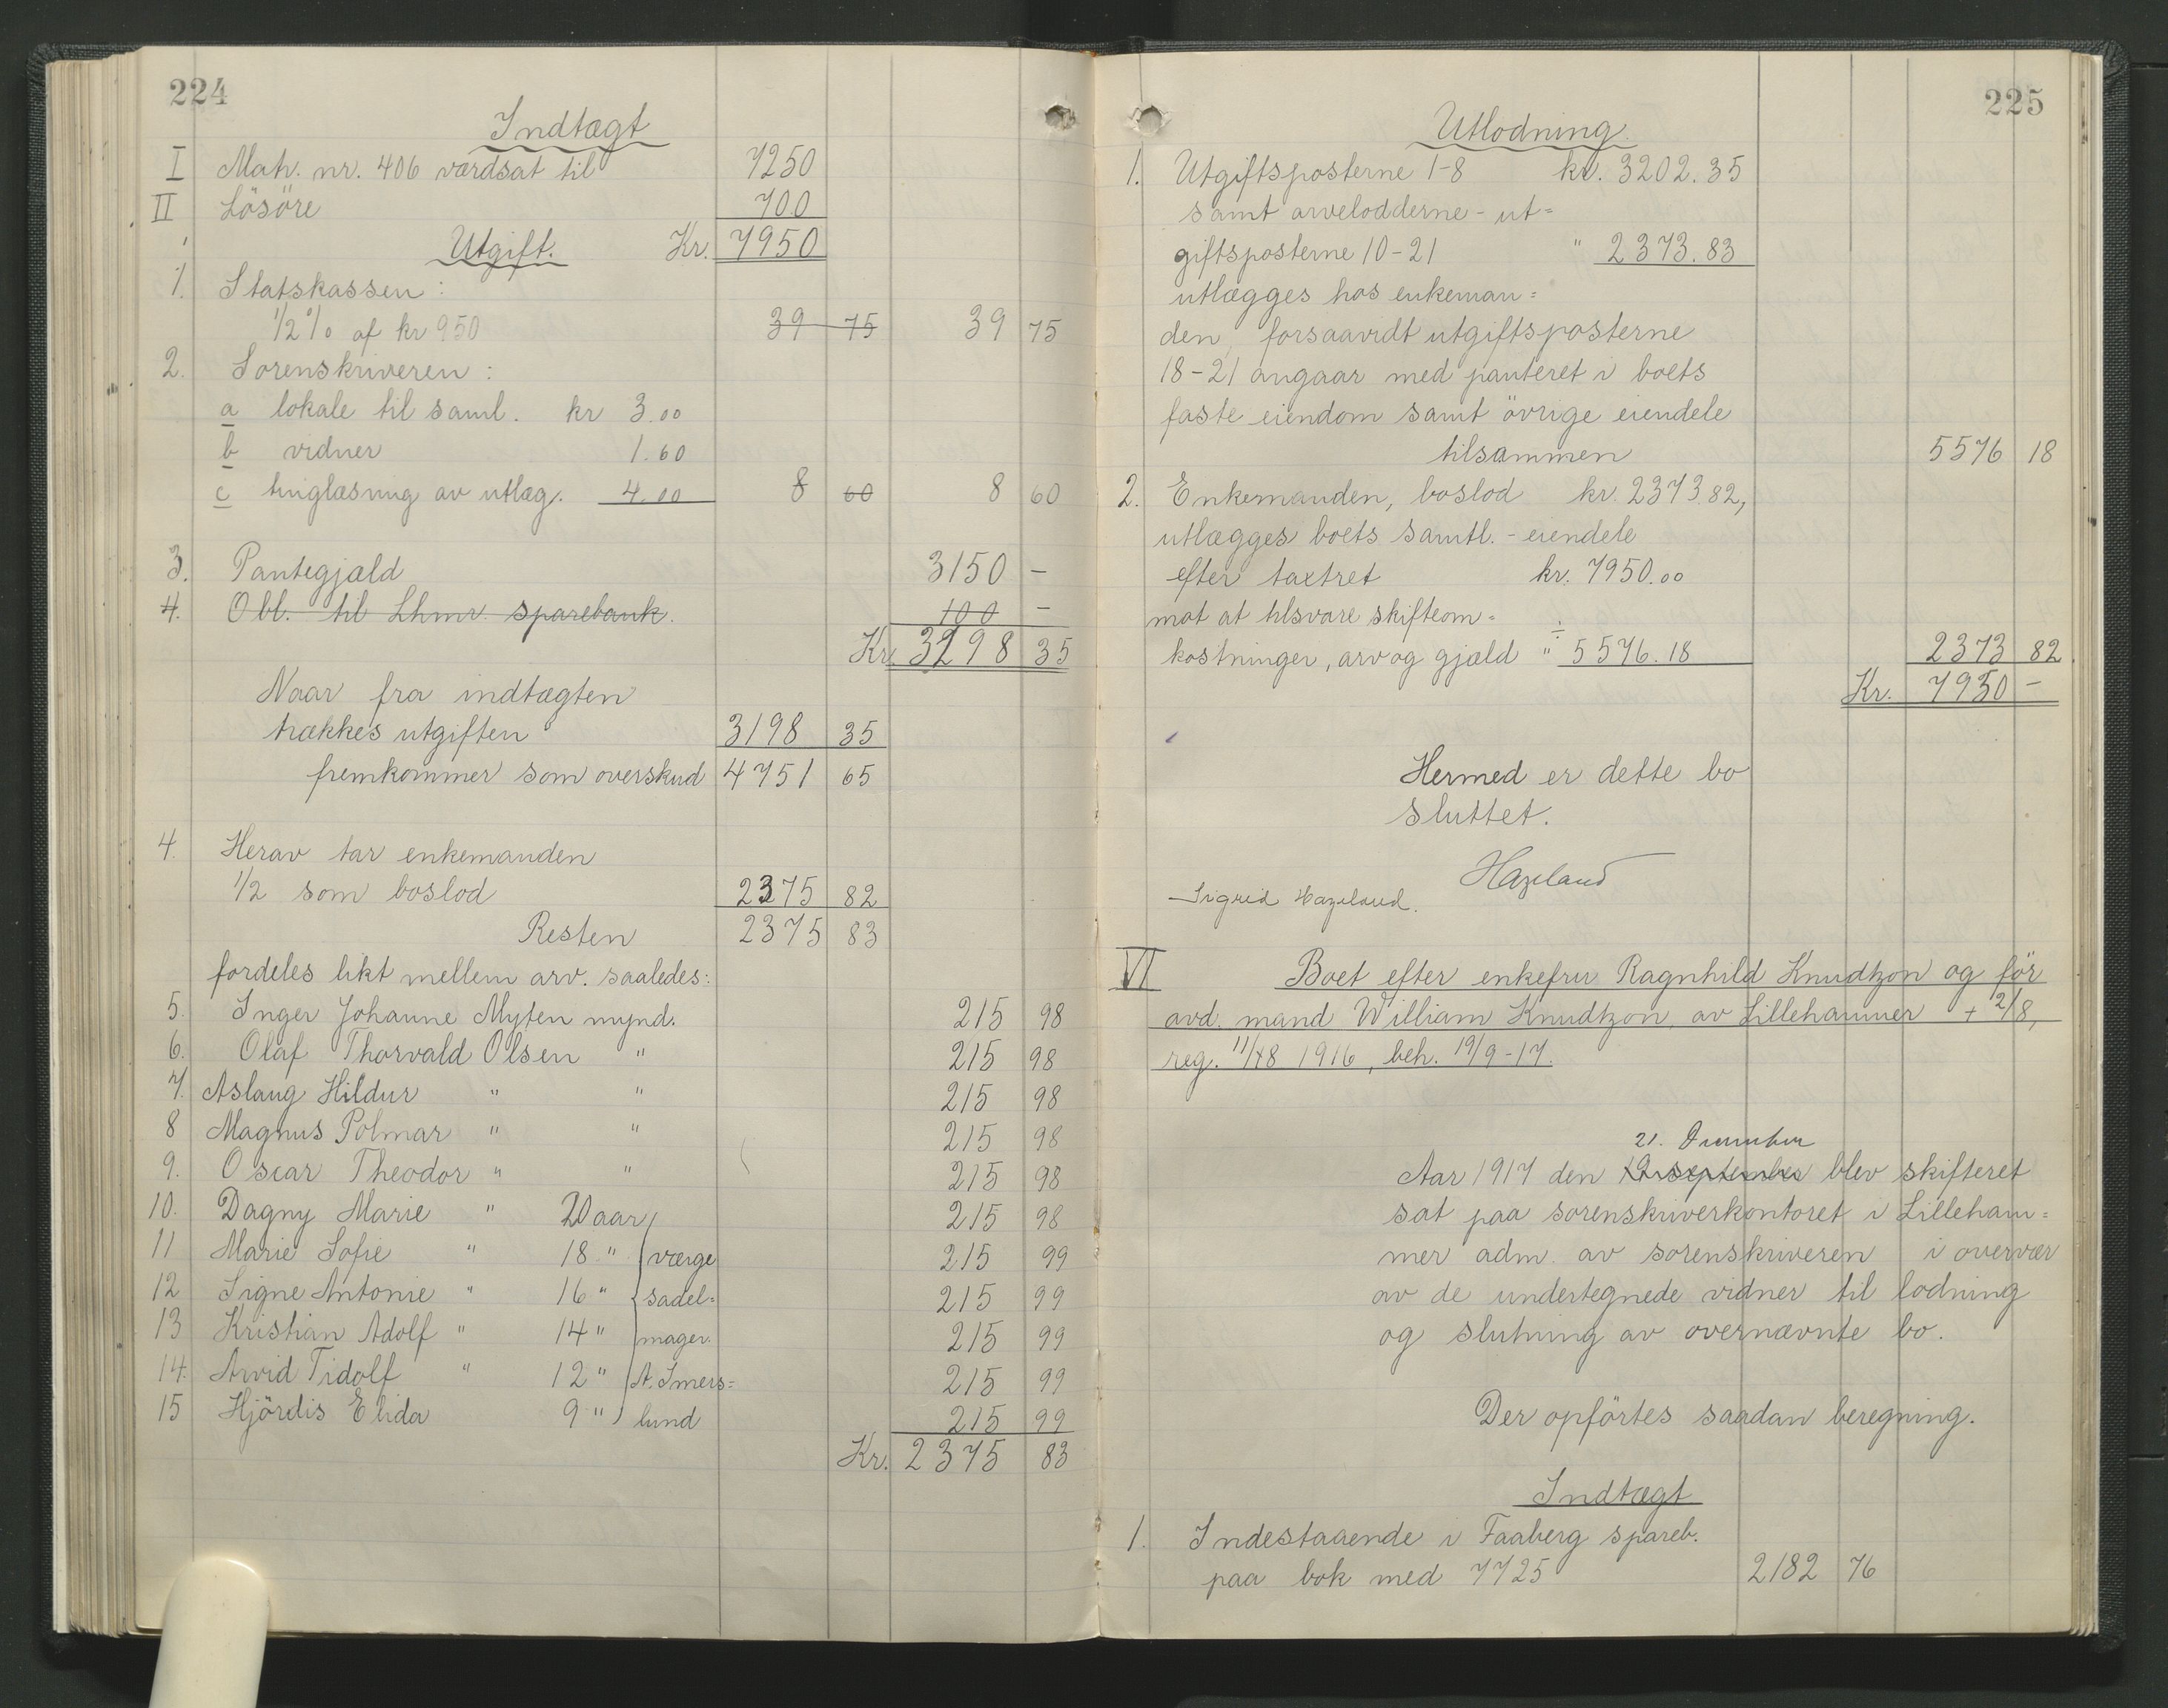 224
Indtægt
I Matr. nr. 406 værdsat til 7250
II Lösöre 700
Utgift. Kr. 7950
1. Statskassen:
1/2 % af kr 950 39 75 39 75
2. Sorenskriveren:
a lokale til saml. kr 3.00
b vidner 1.60
c tinglæsning av utlæg. 4.00 8 60 8 60
3. Pantegjæld 3150 –
4. Obl. til Lhmr. sparebank. 100 –
Kr. 3298 35
Naar fra indtægten
trækkes utgiften 3198 35
fremkommer som overskud 4751 65
4. Herav tar enkemanden
1/2 som boslod 2375 82
Resten 2375 83
fordeles likt mellem arv. saaledes:
5. Inger Johanne Myten mynd. 215 98
6. Olaf Thorvald Olsen " 215 98
7. Aslaug Hildur " " 215 98
8 Magnus Polmar " " 215 98
9. Oscar Theodor " " 215 98
10. Dagny Marie " 20 aar 215 98
11 Marie Sofie " 18 " værge 215 99
12 Signe Antonie " 16 " sadel= 215 99
13 Kristian Adolf " 14 " mager. 215 99
14. Arvid Tidolf " 12 " A. Imers= 215 99
15 Hjördis Elida 9 " lund 215 99
Kr. 2375 83
225
Utlodning
1. Utgiftsposterne 1-8 kr. 3202.35
samt arvelodderne - ut=
giftsposterne 10-21 " 2373.83
utlægges hos enkeman=
den, forsaavidt utgiftsposterne
18-21 angaar med panteret i boets
faste eiendom samt övrige eiendele
tilsammen 5576 18
2. Enkemanden, boslod kr. 2373.82,
utlægges boets samtl. - eiendele
efter taxtret kr. 7950.00
mot at tilsvare skifteom=
kostninger, arv og gjæld ÷ " 5576.18 2373 82
Kr. 7950 –
Hermed er dette bo
sluttet.
Hazeland
Sigrid Hazeland.
VI Boet efter enkefru Ragnhild Knudtzon og för
avd. mand William Knudtzon, av Lillehammer + 2/8,
reg. 11/8 1916, beh. 19/9-17.
21. December
Aar 1917 den 19 september blev skifteret
sat paa sorenskriverkontoret i Lilleham=
mer adm. av sorenskriveren i overvær
av de undertegnede vidner til lodning
og slutning av overnævnte bo.
Der opförtes saadan beregning.
Indtægt
1. Indestaaende i Faaberg spareb.
paa bok med 7725 2182 76